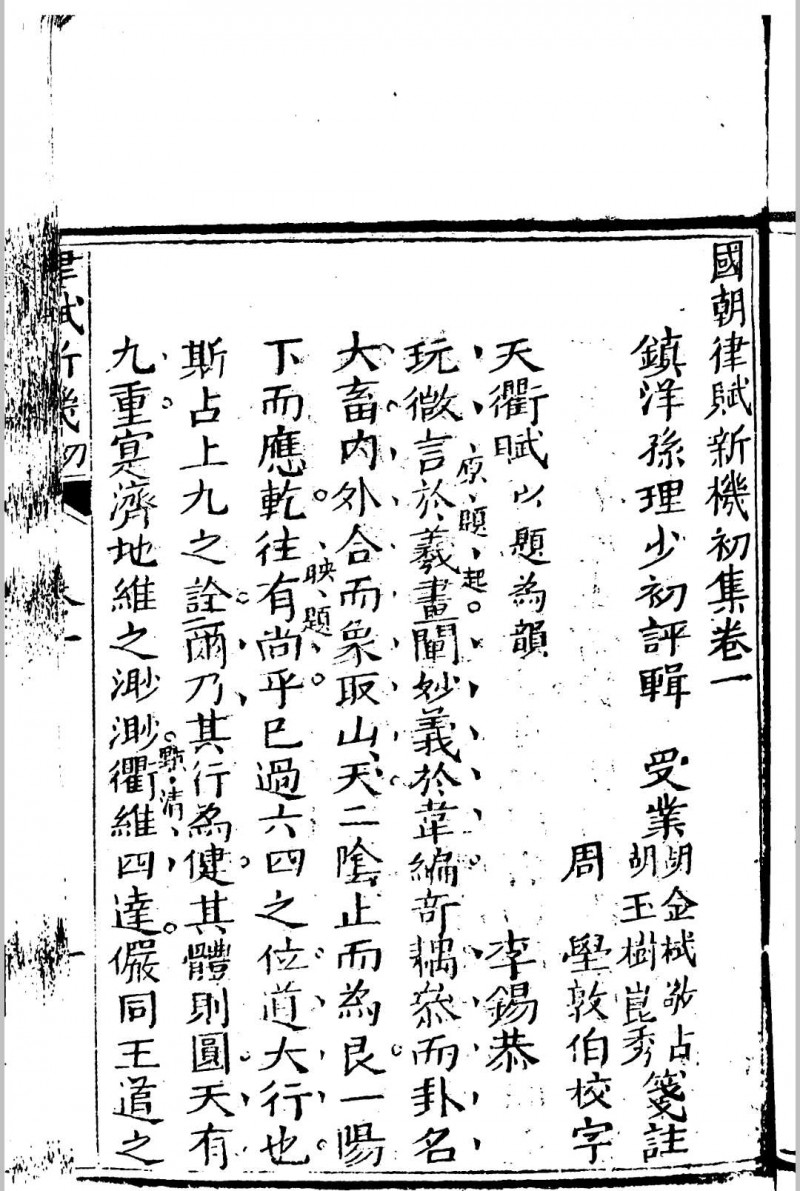 國朝律賦新機初集卷一
鎮洋孫理少初評輯 受業胡金棫敬占胡玉樹崑秀箋註
周 壆敦伯校字
天衢賦以題為韻 李錫恭
玩微言於羲畫闡妙義於韋編奇耦叅而卦名
原題起
大畜內外合而象取山天二陰止而為艮一陽
下而應乾往有尚乎已過六四之位道大行也
映題
斯占上九之詮爾乃其行為健其體則圓天有
九重寔濟地維之渺渺衢維四達儼同王道之
點清
律賦新機初 卷一 一